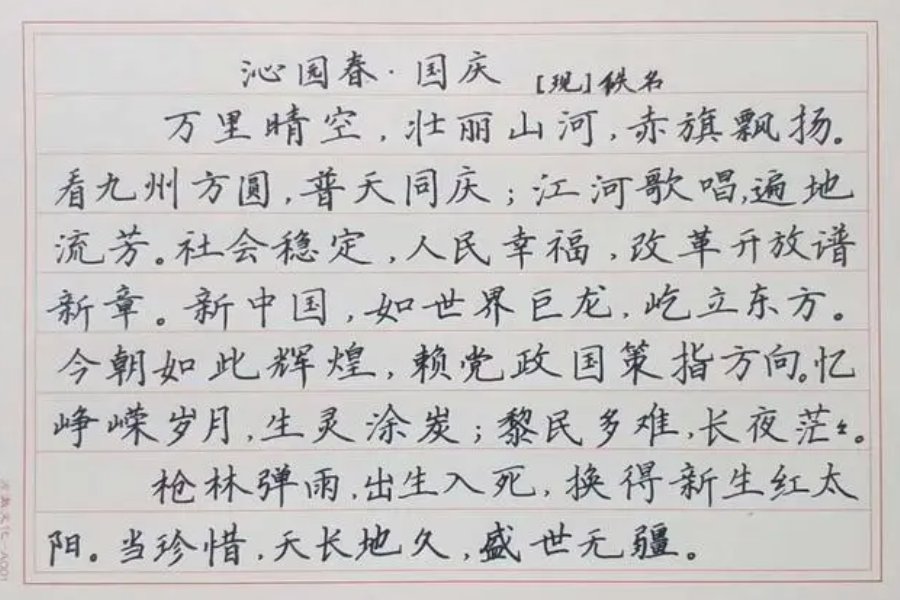 沁园春·国庆 [现]佚名
万里晴空,壮丽山河,赤旗飘扬。
看九州方圆,普天同庆;江河歌唱,遍地
流芳。社会稳定,人民幸福,改革开放谱
新章。新中国,如世界巨龙,屹立东方。
今朝如此辉煌,赖党政国策指方向。忆
峥嵘岁月,生灵涂炭;黎民多难,长夜茫々。
枪林弹雨,出生入死,换得新生红太
阳。当珍惜,天长地久,盛世无疆。